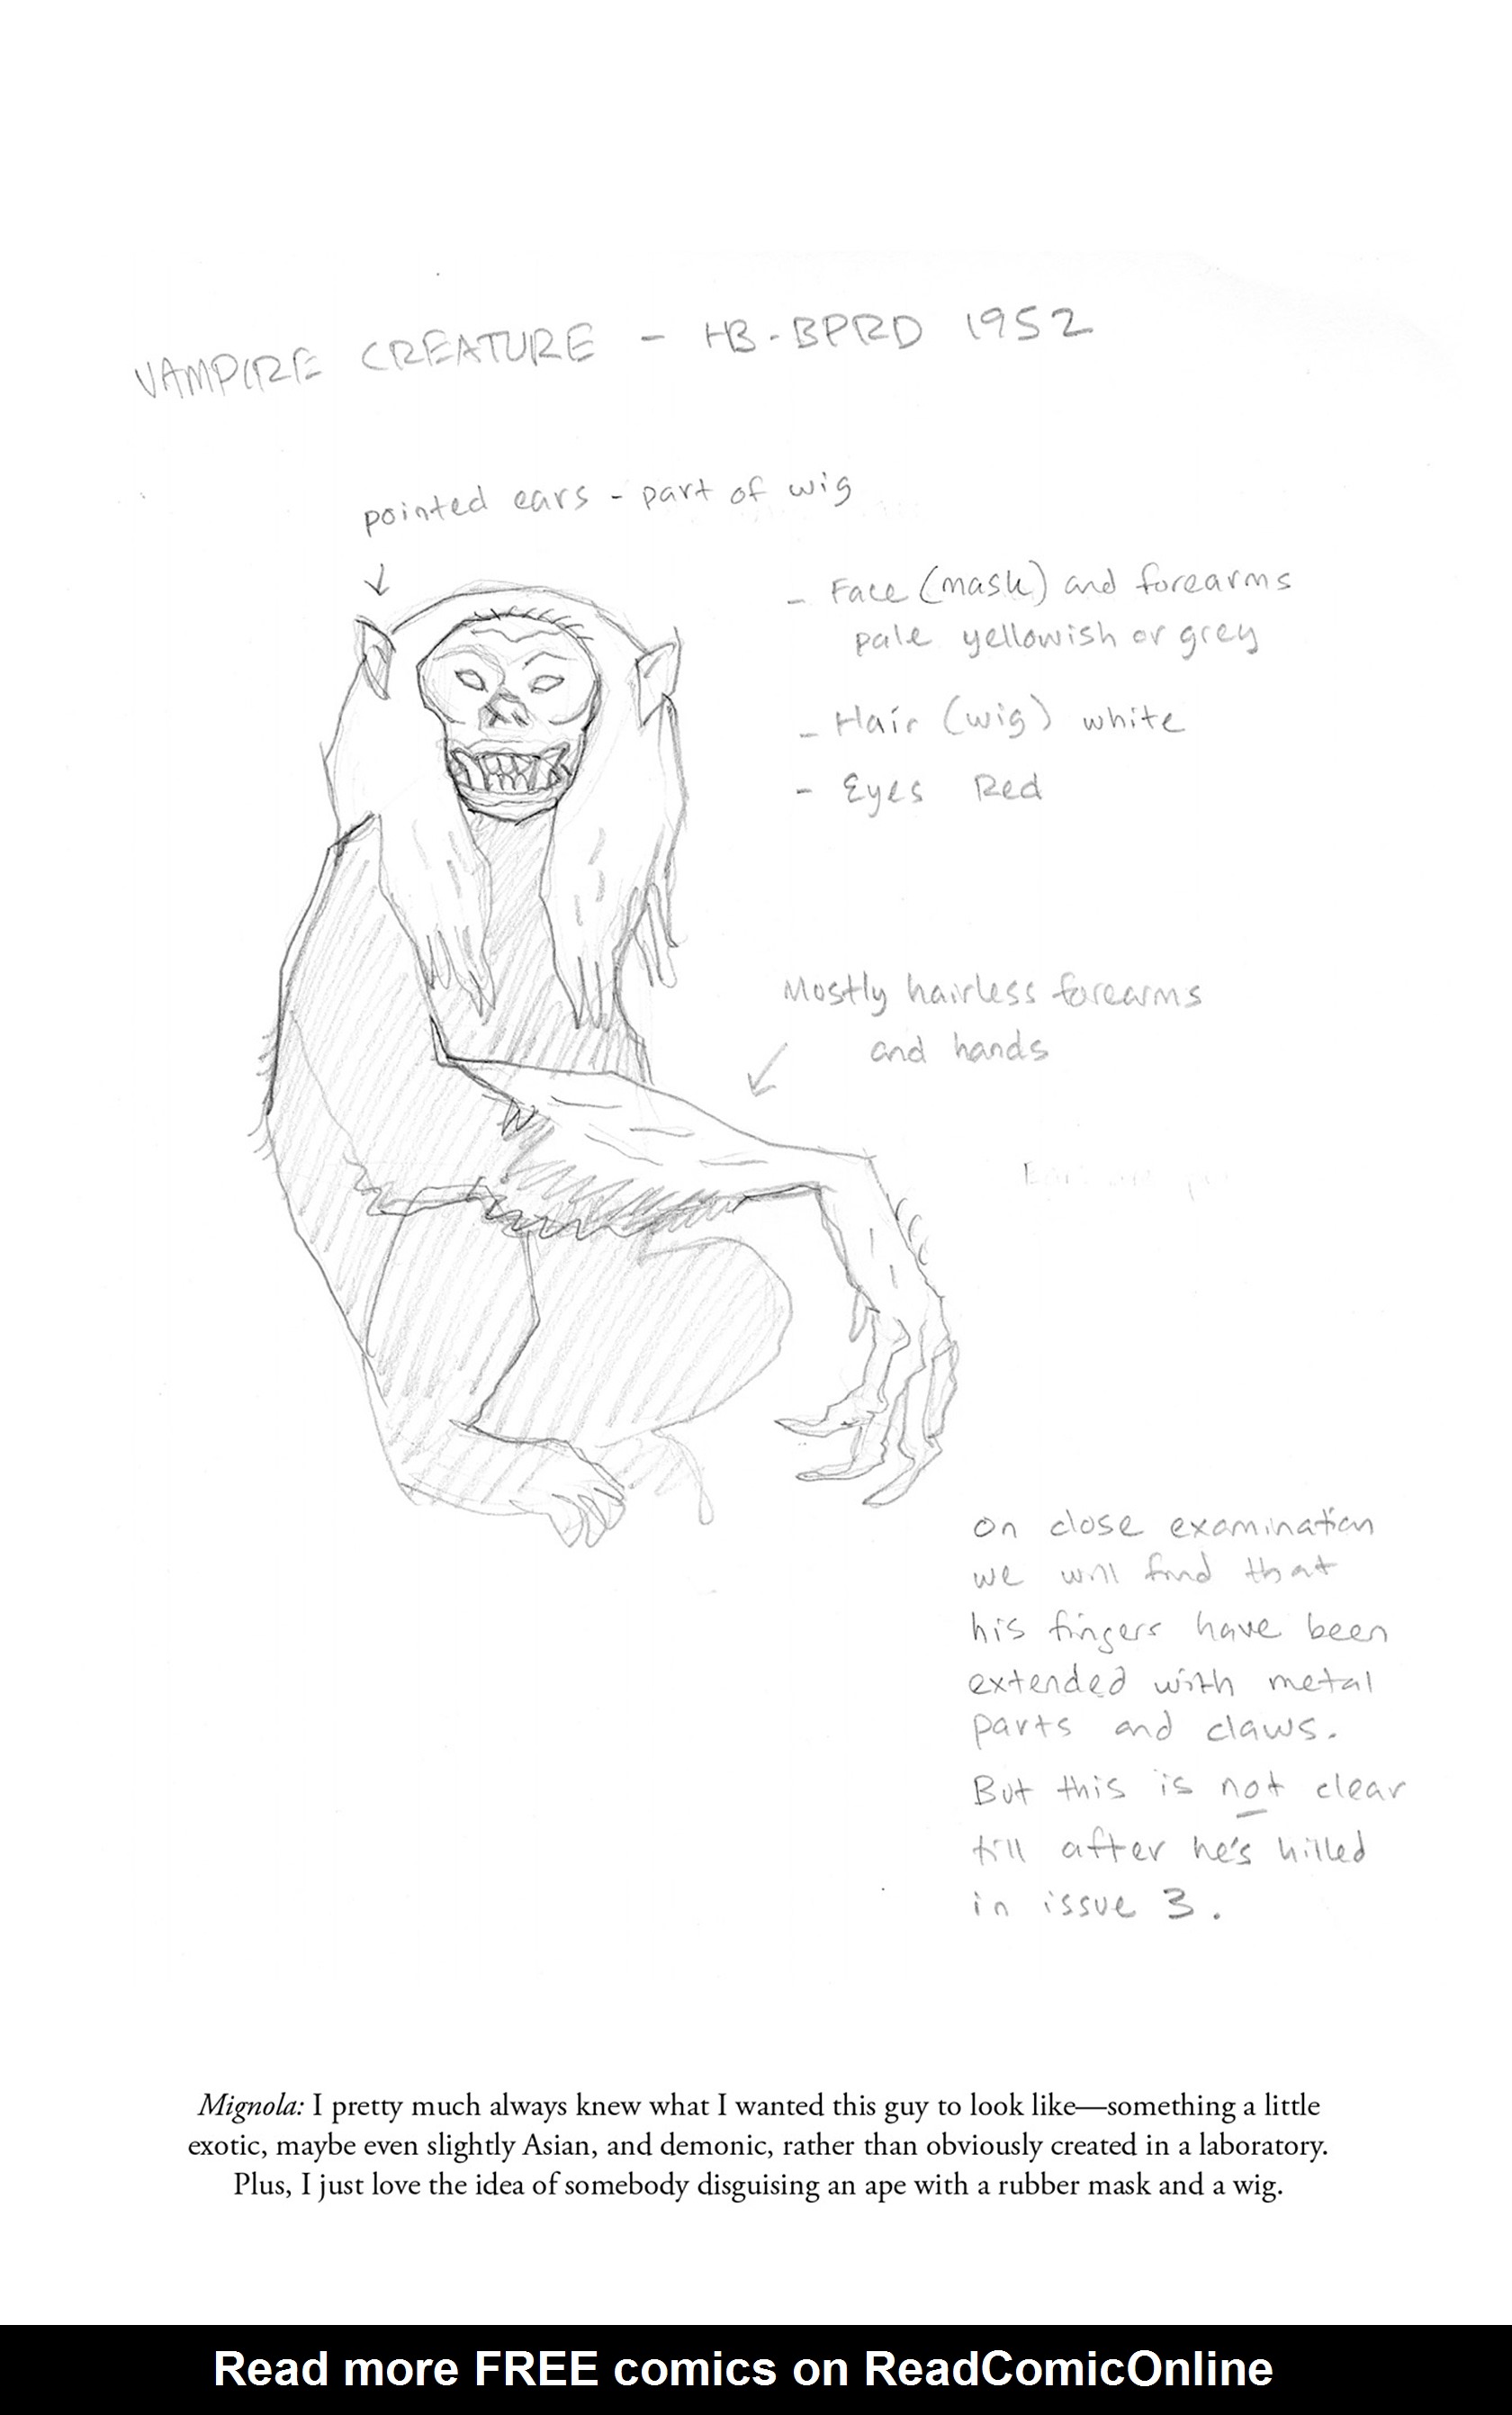 VAMPIRE CREATURE - HB-BPRD 1952
pointed ears - part of wig
- Face (mask) and forearms
pale yellowish or grey
- Hair (wig) white
- Eyes Red
Mostly hairless forearms
and hands
on close examination
we will find that
his fingers have been
extended with metal
parts and claws.
But this is not clear
till after he's killed
in issue 3.
Mignola: I pretty much always knew what I wanted this guy to look like—something a little
exotic, maybe even slightly Asian, and demonic, rather than obviously created in a laboratory.
Plus, I just love the idea of somebody disguising an ape with a rubber mask and a wig.
Read more FREE comics on ReadComicOnline